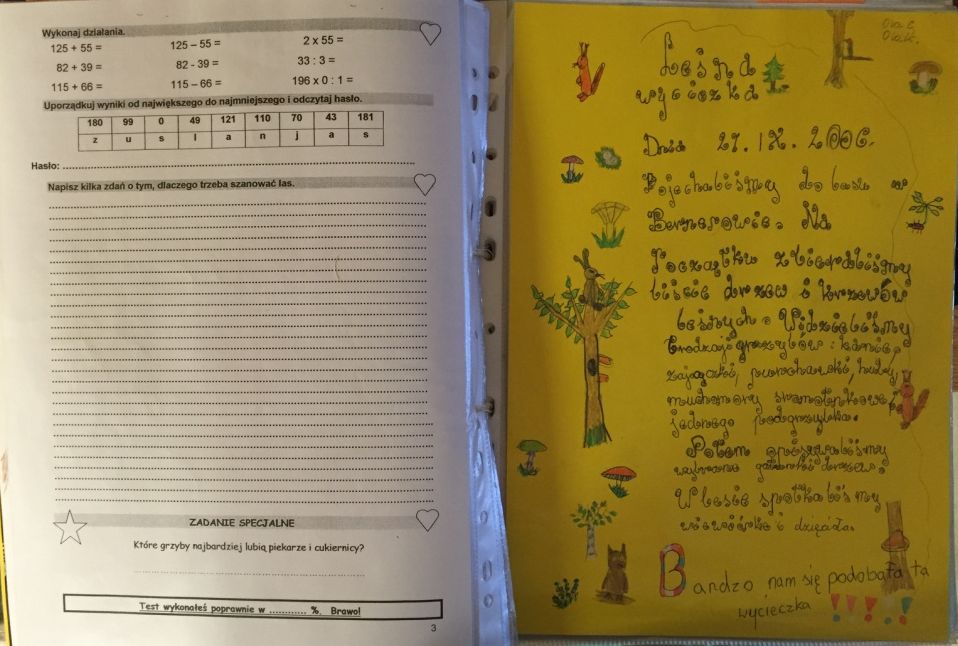 Wykonaj działania.
125 + 55 = 125 – 55 = 2 x 55 =
82 + 39 = 82 - 39 = 33 : 3 =
115 + 66 = 115 – 66 = 196 x 0 : 1 =
Uporządkuj wyniki od największego do najmniejszego i odczytaj hasło.
180 99 0 49 121 110 70 43 181
z u s l a n j a s
Hasło:
Napisz kilka zdań o tym, dlaczego trzeba szanować las.
ZADANIE SPECJALNE
Które grzyby najbardziej lubią piekarze i cukiernicy?
Test wykonałeś poprawnie w ............ %. Brawo!
3
Leśna
wycieczka
Dnia 27. IX. 2006.
Pojechaliśmy do lasu w
Bernerowie. Na
Początku zbieraliśmy
liście drzew i krzewów
leśnych. Widzieliśmy
grzybów: kanie,
zajączki, purchawki, huby,
muchomory sromotnikowe,
jednego podgrzybka.
Potem
wybrane gatunki drzew.
W lesie spotkaliśmy
wiewiórkę i dzięcioła.
Bardzo nam się podobała ta
wycieczka !!!!!